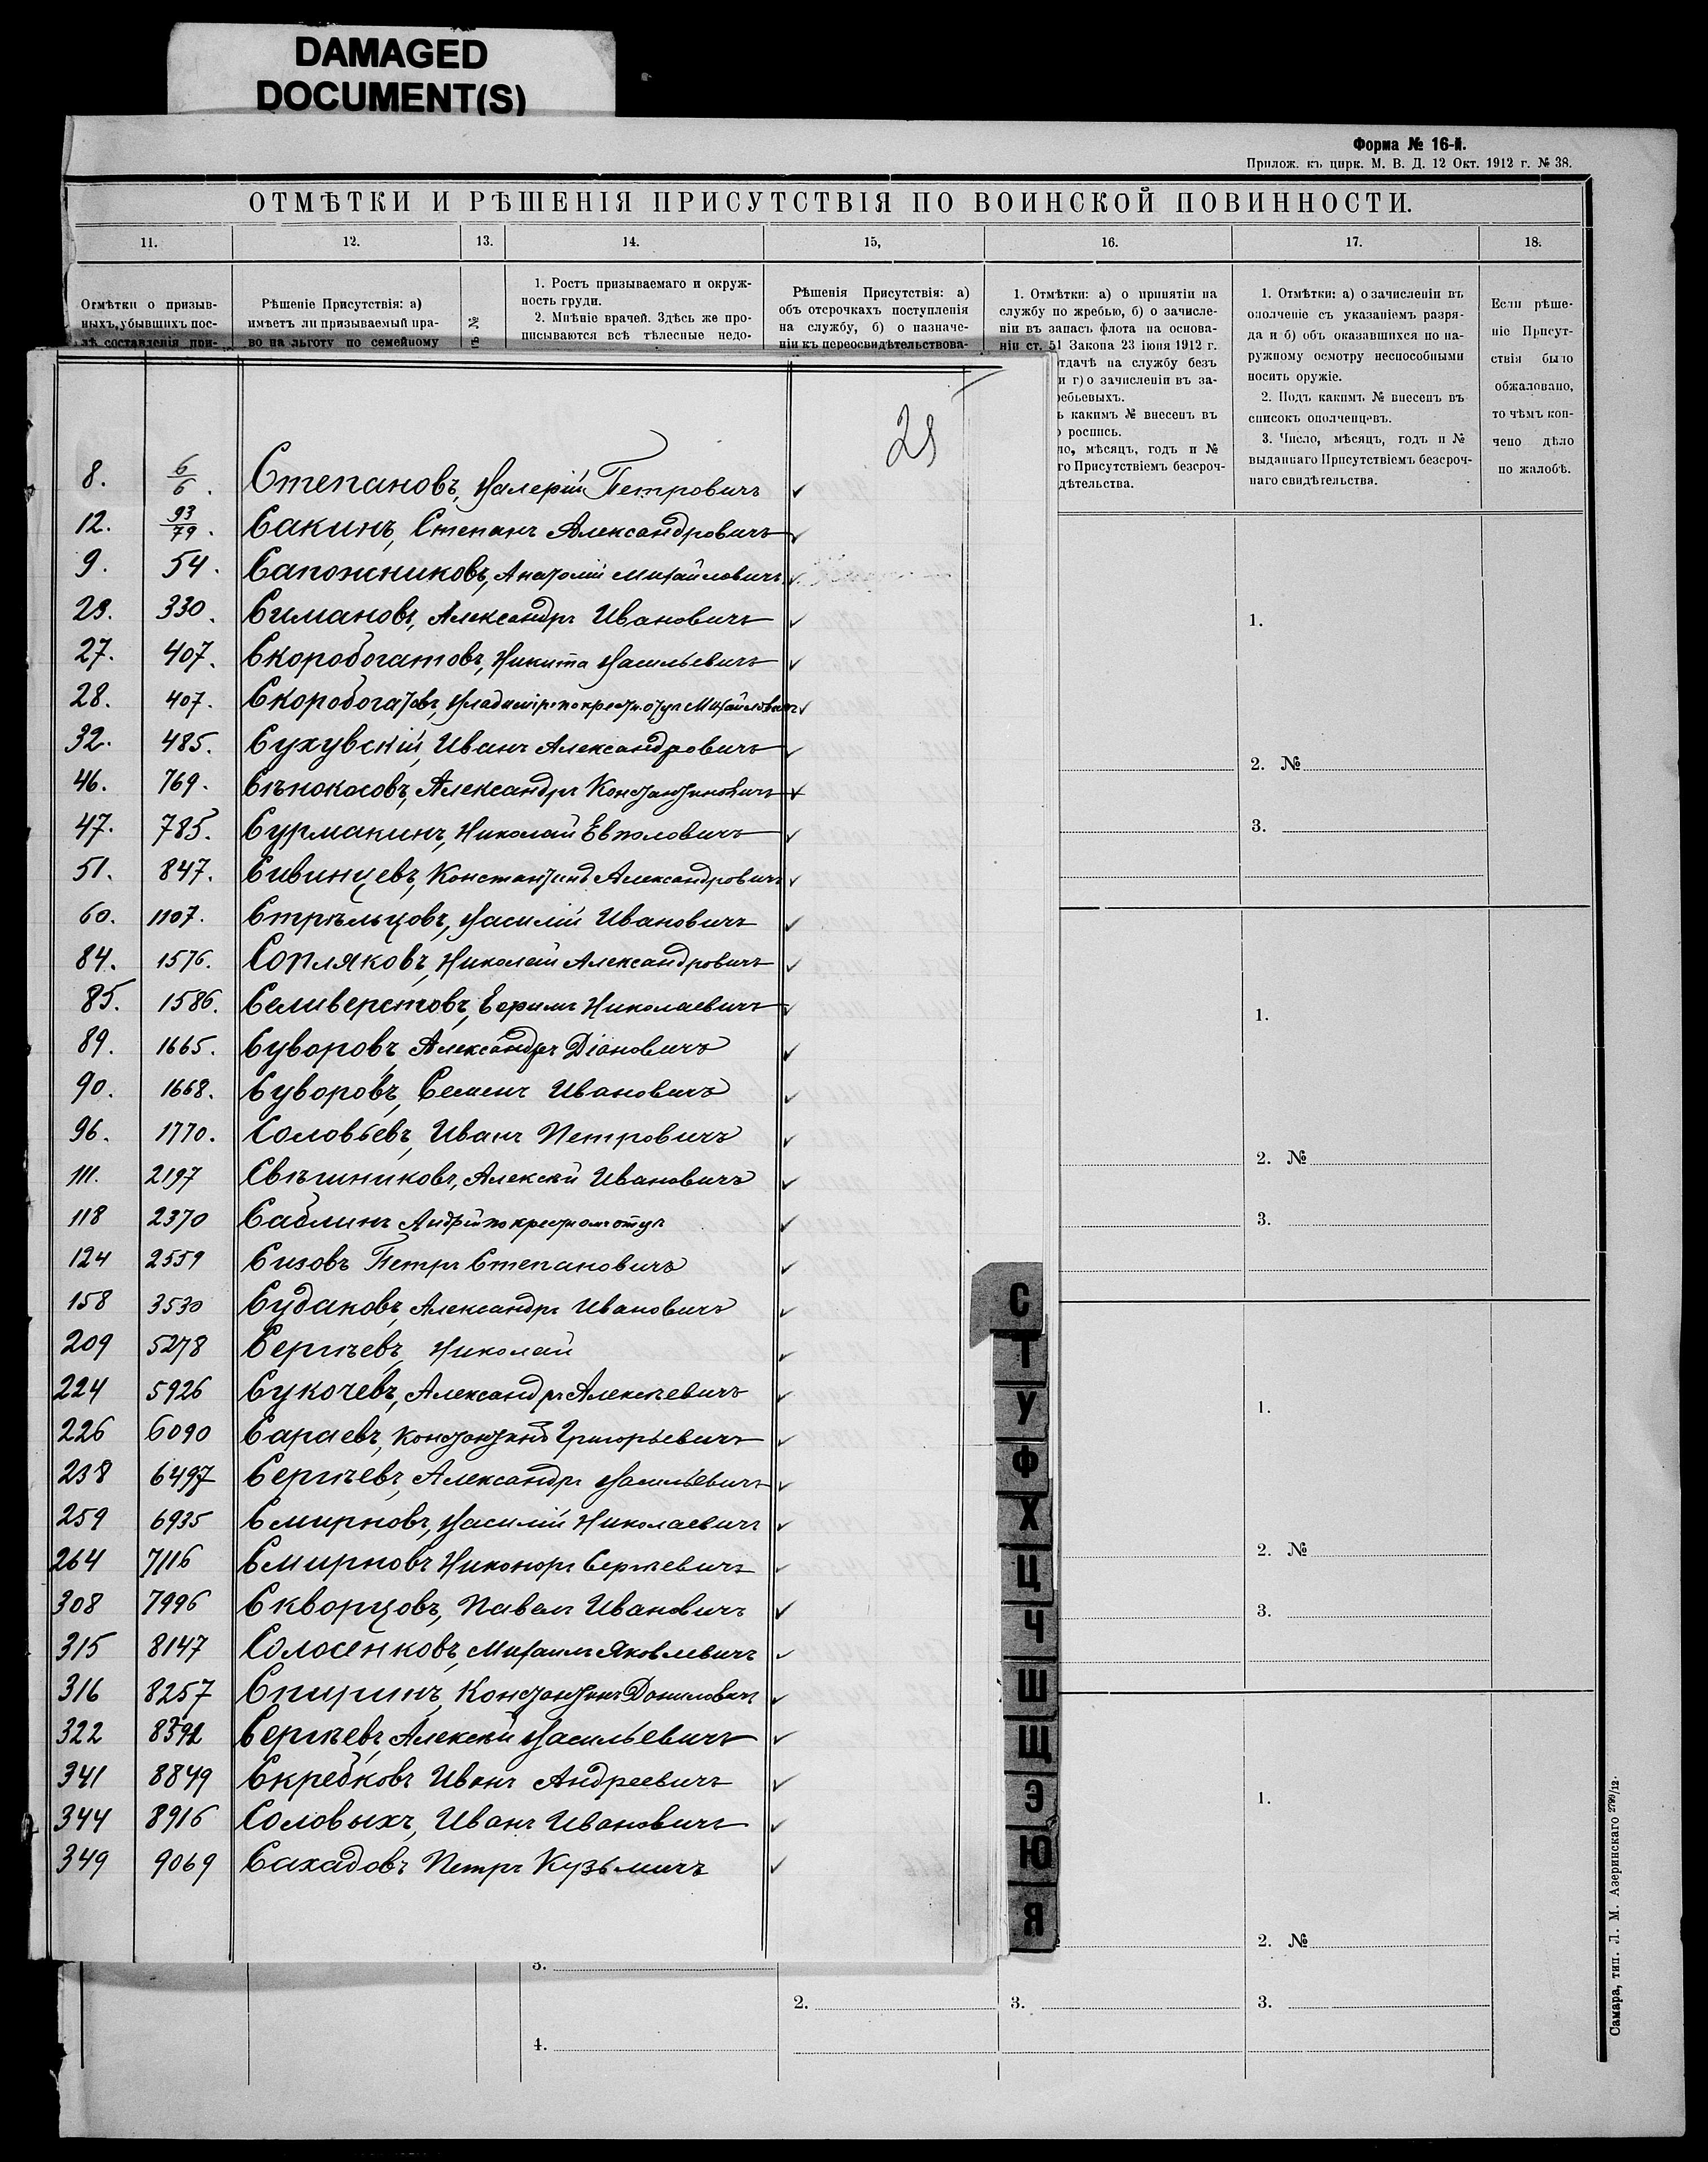 DAMAGED
DOCUMENT(S)
Форма № 16-й.
Прилож. къ цирк. М. В. Д. 12 Окт. 1912 г. № 38.
ОТМѢТКИ И РѢШЕНІЯ ПРИСУТСТВІЯ ПО ВОИНСКОЙ ПОВИННОСТИ.
11. 12. 13. 14. 15, 16. 17. 18.
Отмѣтки о призыв-
ныхъ, убывшихъ пос-
лѣ составленія при-
Рѣшеніе Присутствія: а)
имѣетъ ли призываемый пра-
во на льготу по семейному
№
1. Ростъ призываемаго и окруж-
ность груди.
2. Мнѣніе врачей. Здѣсь же про-
писываются всѣ тѣлесные недо-
Рѣшенія Присутствія: а)
объ отсрочкахъ поступленія
на службу, б) о назначе-
ніи къ переосвидѣтельствова-
1. Отмѣтки: а) о принятіи на
службу по жребью, б) о зачисле-
ніи въ запасъ флота на основа-
ніи ст. 51 Закона 23 іюня 1912 г.
тдачѣ на службу безъ
и г) о зачисленіи въ за-
ребьевыхъ.
ъ какимъ № внесенъ въ
роспись.
ло, мѣсяцъ, годъ и №
го Присутствіемъ безсроч-
дѣтельства.
1. Отмѣтки: а) о зачисленіи въ
ополченіе съ указаніемъ разря-
да и б) объ оказавшихся по на-
ружному осмотру неспособными
носить оружіе.
2. Подъ какимъ № внесенъ въ
списокъ ополченцевъ.
3. Число, мѣсяцъ, годъ и №
выданнаго Присутствіемъ безсроч-
наго свидѣтельства.
Если рѣше-
ніе Присут-
ствія было
обжаловано,
то чѣмъ кон-
чено дѣло
по жалобѣ.
8. 6/6. Степановъ, Валерій Петровичъ
12. 93/79. Сакинъ, Степанъ Александровичъ
9. 54. Сапожниковъ, Анатолій Михайловичъ
23. 330. Симановъ, Александръ Ивановичъ
27. 407. Скоробогатовъ, Никита Васильевичъ
28. 407. Скоробогатовъ, Владиміръ по крестн. отцу Михайловичъ
32. 485. Сухувскій, Иванъ Александровичъ
46. 769. Сѣнокосовъ, Александръ Константиновичъ
47. 785. Сурмакинъ, Николай
51. 847. Сивинцевъ, Константинъ Александровичъ
60. 1107. Стрѣльцовъ, Василій Ивановичъ
84. 1576. Сопляковъ, Николай Александровичъ
85. 1586. Селиверстовъ, Ефимъ Николаевичъ
89. 1665. Суворовъ, Александръ Діановичъ
90. 1668. Суворовъ, Семенъ Ивановичъ
96. 1770. Соловьевъ, Иванъ Петровичъ
111. 2197 Свѣшниковъ, Алексѣй Ивановичъ
118 2370 Саблинъ Андрѣй по крестному отцу
124 2559 Сизовъ Петръ Степановичъ
158 3530 Судаковъ, Александръ Ивановичъ
209 5278 Сергѣевъ, Николай
224 5926 Сукочевъ, Александръ Алексѣевичъ
226 6090 Сараевъ, Константинъ Григорьевичъ
238 6497 Сергѣевъ, Александръ Васильевичъ
259 6935 Смирновъ, Василій Николаевичъ
264 7116 Смирновъ Никоноръ Сергѣевичъ
308 7996 Скворцовъ, Павелъ Ивановичъ
315 8147 Солосенковъ, Михаилъ Яковлевичъ
316 8257 Спиринъ, Константинъ Даниловичъ
322 Сергѣевъ, Алексѣй Васильевичъ
341 8849 Скребковъ Иванъ Андреевичъ
344 8916 Соловыхъ, Иванъ Ивановичъ
349 9069 Сахадовъ Петръ Кузьмичъ
С
Т
У
Ф
Х
Ц
Ч
Ш
Щ
Э
Ю
Я
1.
2. №
3.
1.
2. №
3.
1.
2. №
3.
1.
2. №
3. 2. 3. 3.
4.
Самара, тип. Л. М. Азеринскаго 2799/12.